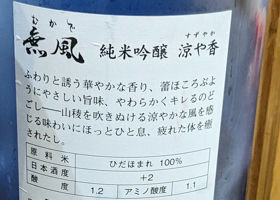 むかで
無風 純米吟醸 涼や香
すずやか
ふわりと誘う華やかな香り、蕾ほころぶよ
うにやさしい旨味、やわらかくキレるのど
ごし――山稜を吹きぬける涼やかな風を感
じる味わいにほっとひと息、疲れた体を癒
されたし。
原料米 ひだほまれ 100%
日本酒度 +2
酸度 1.2 アミノ酸度 1.1